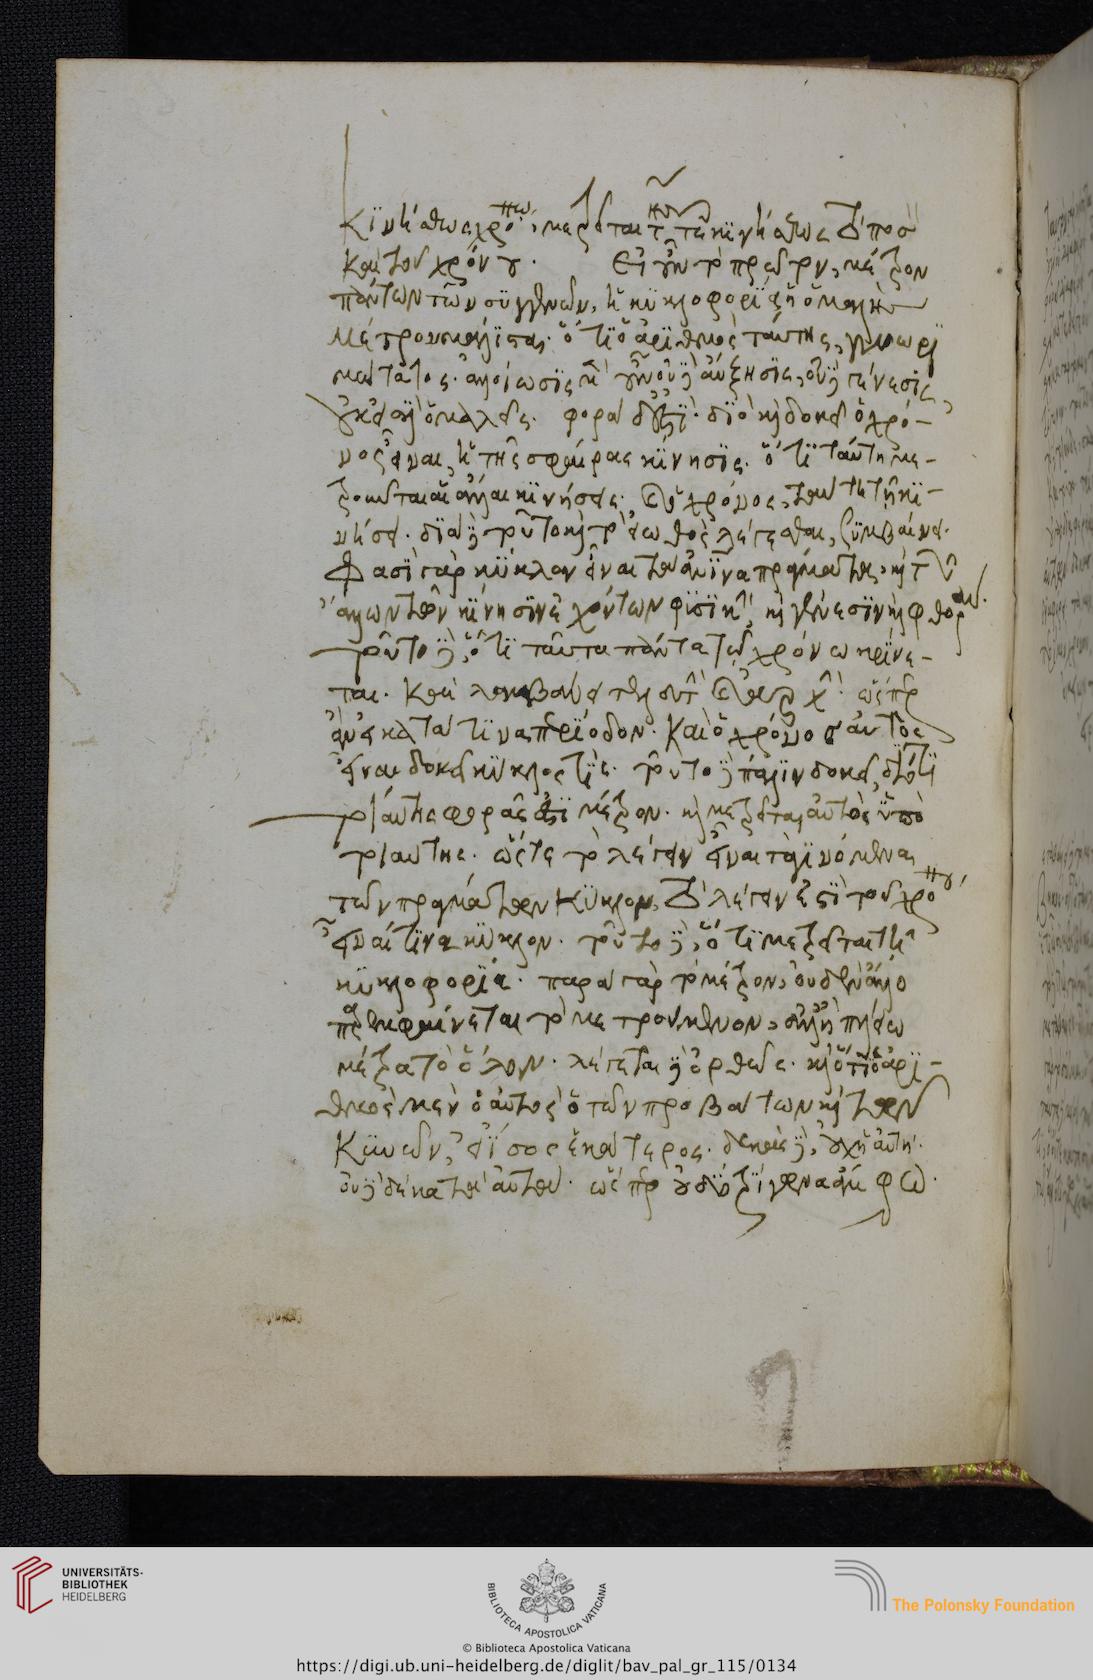 κινήσεως χρόνου, μετρεῖται τῆς τε κινήσεως τὸ ποσὸ
καὶ τοῦ χρόνου. Εἰ οὖν τὸ πρῶτον, μέτρον
πάντων τῶν συγγενῶν, ἡ κυκλοφορία ἡ ὁμαλὴς
μέτρον μάλιστα. ὅτι ὁ ἀριθμὸς ταύτης, γνωρι
μώτατος. ἀλλοίωσις μὲν οὖν οὐδὲ αὔξησις, οὐδὲ γένεσις,
οὐκ εἰσὶ ὁμαλεῖς. φορὰ δ' ἐστί. διὸ καὶ δοκεῖ ὁ χρό-
νος εἶναι, ἡ τῆς σφαίρας κίνησις. ὅτι ταύτῃ με-
τροῦνται αἱ ἄλλαι κινήσεις. καὶ ὁ χρόνος, ταύτῃ τῇ κι-
νήσει. διὰ δὲ τοῦτο καὶ τὸ εἰωθὸς λέγεσθαι, συμβαίνει.
Φασὶ γὰρ κύκλον εἶναι τὰ ἀνθρώπινα πράγματα. καὶ τῶν
ἄλλων τῶν κίνησιν ἐχόντων φυσικὴν, καὶ γένεσιν καὶ φθοράν.
τοῦτο δὲ, ὅτι ταῦτα πάντα τῷ χρόνῳ κρίνε-
ται. καὶ λαμβάνει τελευτὴν καὶ ἀρχήν. ὥσπερ
ἂν εἰ κατά τινα περίοδον. καὶ ὁ χρόνος αὐτὸς
εἶναι δοκεῖ κύκλος τίς. τοῦτο δὲ πάλιν δοκεῖ, διότι
τοιαύτης φορᾶς ἐστὶ μέτρον. καὶ μετρεῖται αὐτὸς ὑπὸ
τοιαύτης. ὥστε τὸ λέγειν εἶναι τὰ γινόμενα
τῶν πραγμάτων κύκλον, τὸ λέγειν ἐστὶ τοῦ χρόνου,
εἶναί τινα κύκλον. τοῦτο δὲ, ὅτι μετρεῖται τῇ
κυκλοφορίᾳ. παρὰ γὰρ τὸ μέτρον, οὐδὲν ἄλλο
παρεμφαίνεται τὸ μετρούμενον, ἀλλ' ἢ πλείω
μέτρα τὸ ὅλον. λέγεται δὲ ὀρθῶς. καὶ ὅτι ὁ ἀρι-
θμὸς μὲν ὁ αὐτὸς ὁ τῶν προβάτων καὶ τῶν
κυνῶν, εἰ ἴσος ἑκάτερος. δεκὰς δὲ, οὐχ ἡ αὐτή.
οὐδὲ δέκα τὰ αὐτά. ὥσπερ οὐδὲ τρίγωνα
UNIVERSITÄTS-
BIBLIOTHEK
HEIDELBERG
BIBLIOTECA APOSTOLICA VATICANA
The Polonsky Foundation
© Biblioteca Apostolica Vaticana
https://digi.ub.uni-heidelberg.de/diglit/bav_pal_gr_115/0134